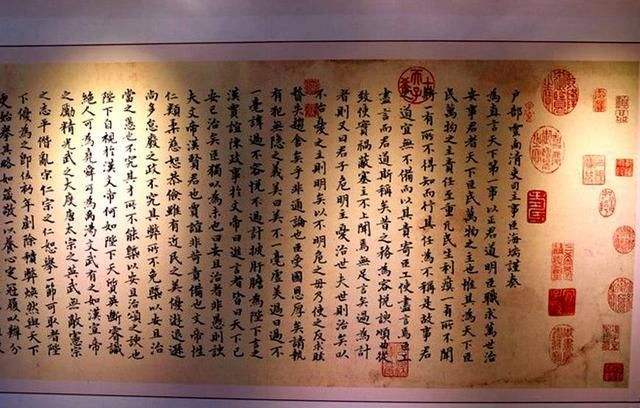 户部雲南清吏司主事臣海瑞謹奏
為直言天下第一事以正君道明臣職求萬世治
安事君者天下臣民萬物之主也惟其為天下臣
民萬物之主責任至重凡民生利病一有所不聞
將一有所不得知而行其任為不稱是故事君
之道宜無不備而以其責寄臣工使盡言焉臣工
盡言而君道斯稱矣昔之務為容悦諛順曲從
致使實禍蔽塞主不上聞焉無足言矣過為計
者則又曰君子危明主憂治世夫世則治矣以
不治憂之主則明矣以不明危之毋乃使之反求眩
瞀失趨舍矣乎非通論也臣受國恩厚矣請執
有犯無隱之義美曰美不一毫虛美過曰過不
一毫諱過不容悦不過計披肝膽為陛下言之
漢賈誼陳政事於文帝曰進言者皆曰天下已
安已治矣臣獨以為未也曰安且治者非愚則諛
夫文帝漢賢君也賈誼非苛責備也文帝性
仁類柔慈恕恭儉雖有近民之美優游退遜
尚多怠廢之政不究其弊所不免槩以安且治
當之愚也不究其才所不能槩以安且治頌之諛也
陛下自視於漢文帝何如陛下天質英斷睿識
絶人可為堯舜可為禹湯文武下之如漢宣帝
之勵精光武之大度唐太宗之英武無敵憲宗
之志平僭亂宋仁宗之仁恕舉一節可取者陛
下優為之即位初年剷除積弊煥然與天下
更始舉其略如箴敬一以養心定冠履以辨分